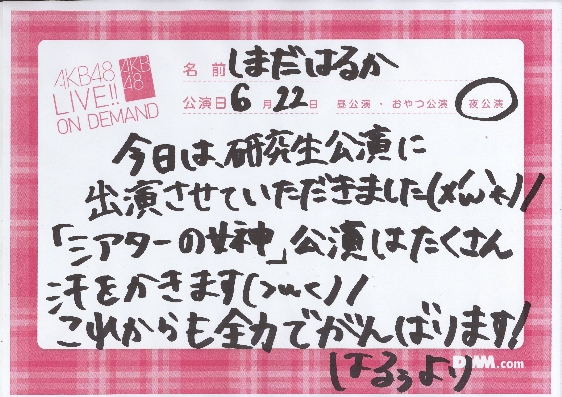 AKB48
LIVE!!
ON DEMAND
AKB
48
名前 しまだはるか
公演日 6月22日 昼公演・おやつ公演 夜公演
今日は、研究生公演に
出演させていただきました(*'ω'*)//
「シアターの女神」公演はたくさん
汗をかきます(>ω<)//
これからも全力でがんばります!
はるぅより
DMM.com